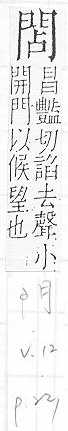 昌豔切諂去聲小
開門以候望也
v.12